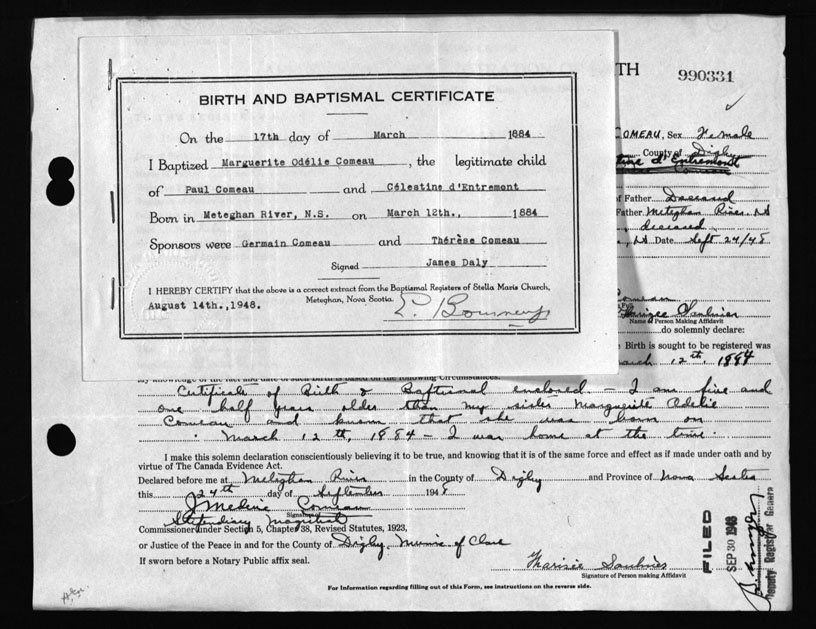 BIRTH AND BAPTISMAL CERTIFICATE
On the 17th day of March 1884
I Baptized Marguerite Odélie Comeau, the legitimate child
of Paul Comeau and Célestine d'Entremont
Born in Meteghan River, N.S. on March 12th., 1884
Sponsors were Germain Comeau and Thérèse Comeau
Signed James Daly
I HEREBY CERTIFY that the above is a correct extract from the Baptismal Registers of Stella Maris Church,
Meteghan, Nova Scotia.
August 14th.,1948.
TH
990331
COMEAU, Sex Female
County of Digby
d'Entremont
of Father Deceased
Father Meteghan River, N.S.
deceased
Date Sept 24/48
Name of Person Making Affidavit
do solemnly declare:
Birth is sought to be registered was
March 12th, 1884
my knowledge of the fact and date of such birth is based on the following circumstances:
Certificate of Birth & Baptismal enclosed - I am five and
one half years older than my sister Marguerite Odelie
Comeau and know that she was born on
March 12th, 1884 - I was home at the time.
I make this solemn declaration conscientiously believing it to be true, and knowing that it is of the same force and effect as if made under oath and by
virtue of The Canada Evidence Act.
Declared before me at Meteghan River in the County of Digby and Province of Nova Scotia
this 24th day of September 1948
J Medine Comeau
Stipendiary Magistrate
Commissioner under Section 5, Chapter 38, Revised Statutes, 1923,
or Justice of the Peace in and for the County of Digby, Munic. of Clare
If sworn before a Notary Public affix seal.
Signature of Person making Affidavit
For Information regarding filling out of this Form, see instructions on the reverse side.
FILED
SEP 30 1948
Deputy Registrar General